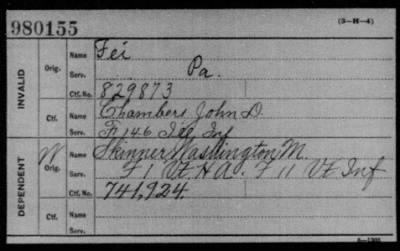 980155
(3-H-4)
INVALID
Orig.
Name Fei
Serv. Pa.
Ctf. No. 829873
Ctf.
Name Chambers John D.
Serv. F 146 Ill Inf
DEPENDENT
W
Orig.
Name Skinner Washington M.
Serv. F 1 Vt. H A. F 11 Vt Inf
Ctf. No. 741,924.
Ctf.
Name
Serv.